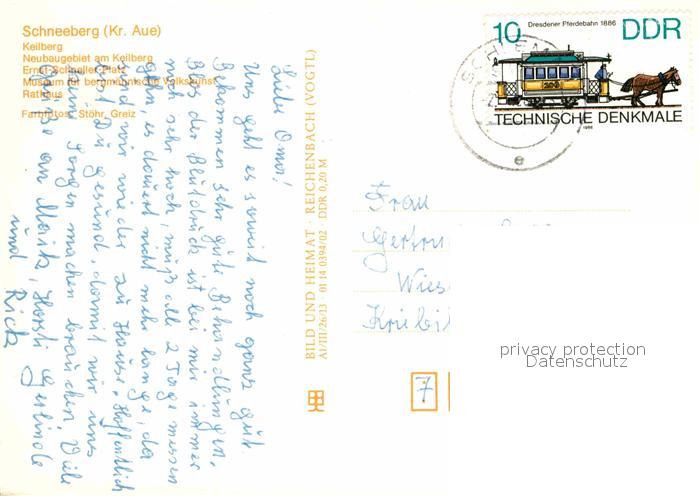 Schneeberg (Kr. Aue)
Keilberg
Neubaugebiet am Keilberg
Ernst-Schneller-Platz
Museum für bergmännische Volkskunst
Rathaus
Farbfotos: Stöhr, Greiz
Liebe Oma!
Uns geht es soweit noch ganz gut.
Bekommen sehr gute Behandlungen.
Blos der Blutdruck ist bei mir immer
noch sehr hoch, muß alle 2 Tage messen
gehn, es dauert nicht mehr lange, da
sind wir wieder zu Hause. Hoffentlich
bist Du gesund, damit wir uns
keine Sorgen machen brauchen. Viele
Grüße an Moritz, Horst, Gerlinde
und Rick
BILD UND HEIMAT · REICHENBACH (VOGTL)
A1/III/26/13 01 14 0394/02 DDR 0,20 M
Dresdener Pferdebahn 1886
10 DDR
TECHNISCHE DENKMALE
1986
Frau
Gertru
Wies
Kriebi
7
privacy protection
Datenschutz